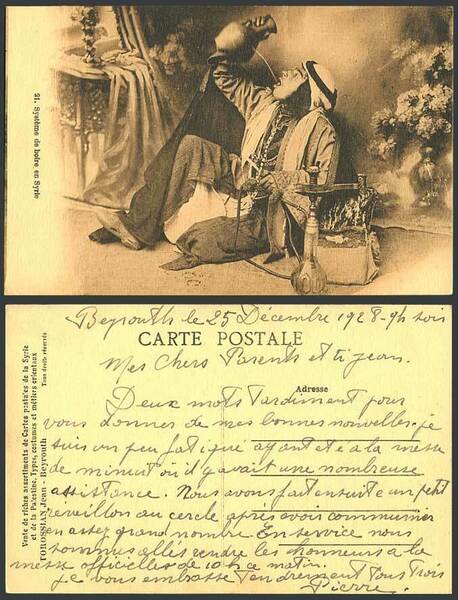 21. Système de boire en Syrie
Beyrouth le 25 Décembre 1928 - 9h soir
CARTE POSTALE
Mes Chers Parents et ti Jean.
Adresse
Deux mots tardiment pour
vous donner de mes bonnes nouvelles. je
suis un peu fatigué ayant été à la messe
de minuit où il y avait une nombreuse
assistance. Nous avons fait ensuite un petit
reveillon au cercle après avoir communier
en assez grand nombre. En service nous
sommes allés rendre les honneurs a la
messe officielles de 10h ce matin.
je vous embrasse tendrement tous trois
Pierre.
Vente de riches assortiments de Cartes postales de la Syrie
et de la Palestine, Types, costumes et métiers orientaux
TOROSSIAN Jean - Beyrouth
Tous droits réservés